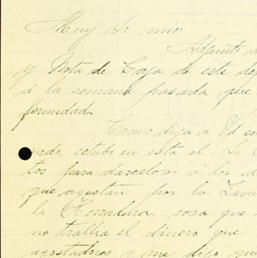 Muy Sr. mio:
Adjunto
y Nota de Caja de este de
á la semana pasada que
formidad.
Como dije a Vd
estubo en esta el Sr.
tos para darselos á los
que agostan por la
la Herradura, cosa que
no trallra el dinero que
agostadizos y me dijo que